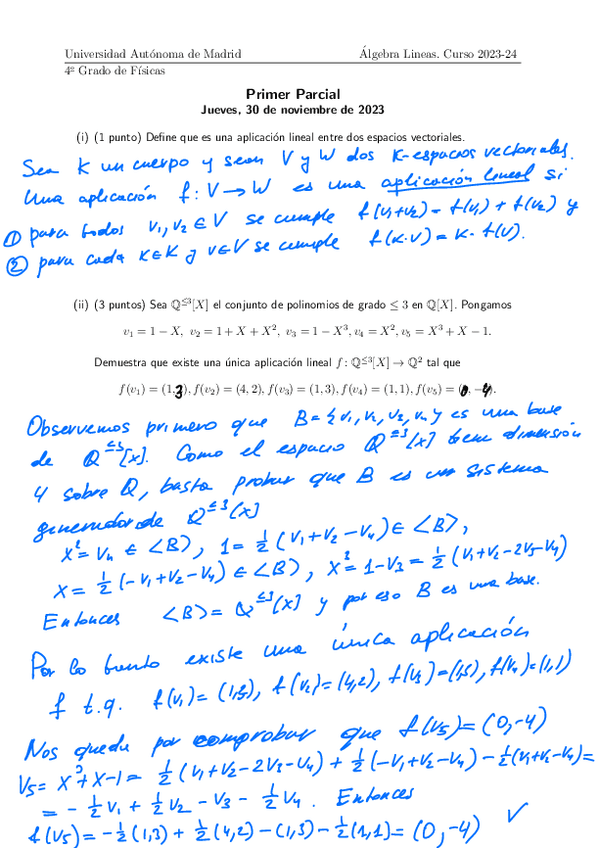 Universidad Autónoma de Madrid Álgebra Lineas. Curso 2023-24
4º Grado de Físicas
Primer Parcial
Jueves, 30 de noviembre de 2023
(i) (1 punto) Define que es una aplicación lineal entre dos espacios vectoriales.
Sea K un cuerpo y sean V y W dos K-espacios vectoriales.
Una aplicación f: V → W es una aplicación lineal si
① para todos v₁, v₂ ∈ V se cumple f(v₁+v₂) = f(v₁) + f(v₂) y
② para cada k∈K y v∈V se cumple f(k·v) = k·f(v).
(ii) (3 puntos) Sea ℚ^{≤3}[X] el conjunto de polinomios de grado ≤ 3 en ℚ[X]. Pongamos
v₁ = 1 − X, v₂ = 1 + X + X², v₃ = 1 − X³, v₄ = X², v₅ = X³ + X − 1.
Demuestra que existe una única aplicación lineal f: ℚ^{≤3}[X] → ℚ² tal que
f(v₁) = (1,3), f(v₂) = (4, 2), f(v₃) = (1, 3), f(v₄) = (1, 1), f(v₅) = (0, −4).
Observemos primero que B = {v₁, v₂, v₃, v₄} es una base
de ℚ^{≤3}[x]. Como el espacio ℚ^{≤3}[x] tiene dimensión
4 sobre ℚ, basta probar que B es un sistema
generador de ℚ^{≤3}[x]
x² = v₄ ∈ ⟨B⟩, 1 = ½(v₁+v₂−v₄) ∈ ⟨B⟩,
x = ½(−v₁+v₂−v₄) ∈ ⟨B⟩, x³ = 1−v₃ = ½(v₁+v₂−2v₃−v₄)
Entonces ⟨B⟩ = ℚ^{≤3}[x] y por eso B es una base.
Por lo tanto existe una única aplicación
f t.q. f(v₁) = (1,3), f(v₂) = (4,2), f(v₃) = (1,3), f(v₄) = (1,1)
Nos queda por comprobar que f(v₅) = (0,−4)
v₅ = x³+x−1 = ½(v₁+v₂−2v₃−v₄) + ½(−v₁+v₂−v₄) − ½(v₁+v₂−v₄) =
= −½v₁ + ½v₂ − v₃ − ½v₄. Entonces
f(v₅) = −½(1,3) + ½(4,2) − (1,3) − ½(1,1) = (0,−4) ✓